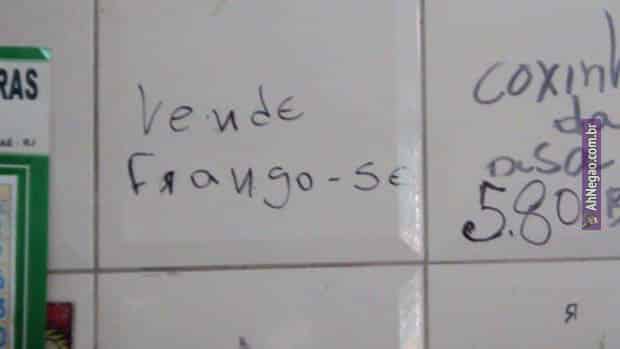 RAS
Vende
Frango-se
coxinh
da
asa
5.80
AhNegao.com.br